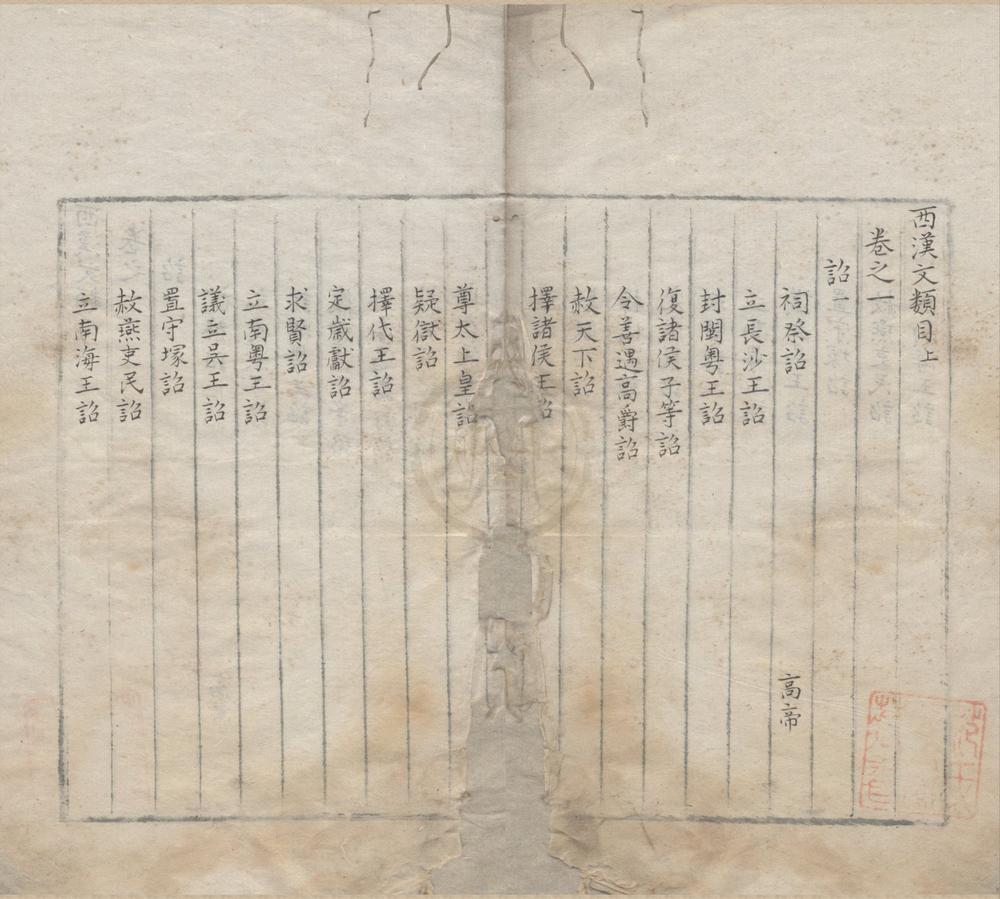 西漢文類目上
卷之一
詔一
祠祭詔 高帝
立長沙王詔
封閩粵王詔
復諸侯子等詔
令善遇高爵詔
赦天下詔
擇諸侯王詔
尊太上皇詔
疑獄詔
擇代王詔
定歲獻詔
求賢詔
立南粵王詔
議立吳王詔
置守塚詔
赦燕吏民詔
立南海王詔